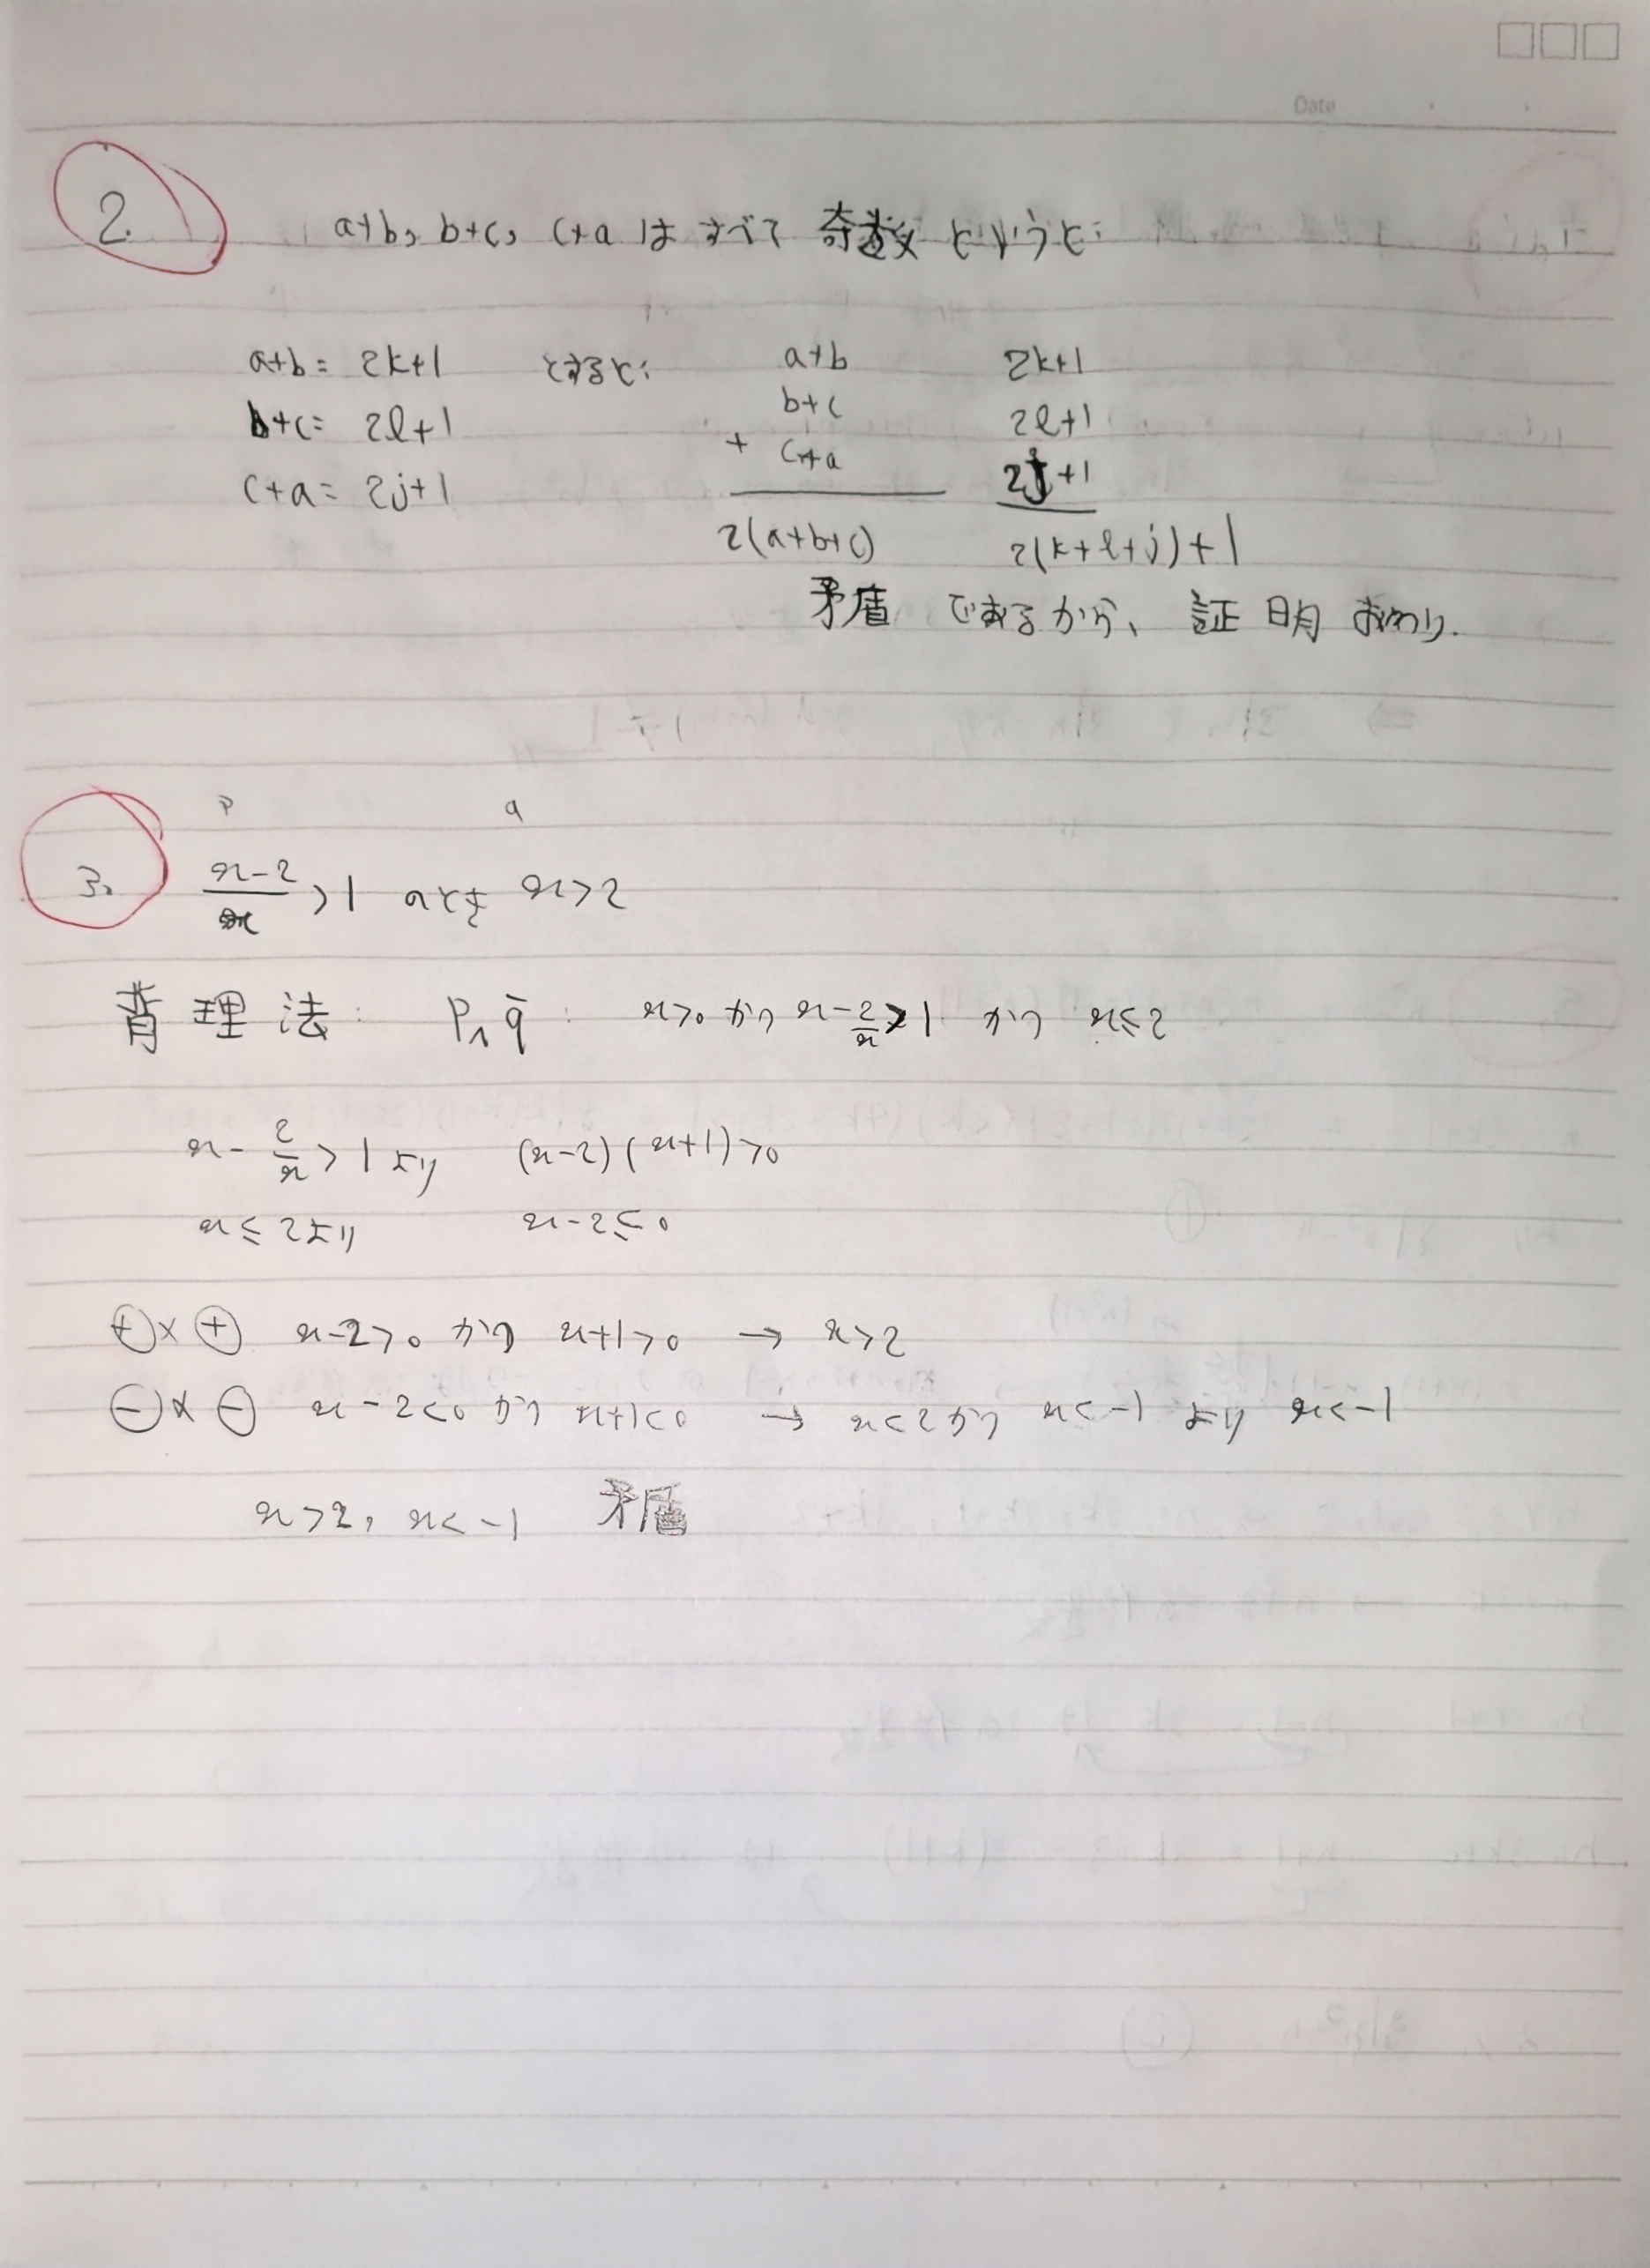 Date
2. a+b, b+c, c+a はすべて 奇数 というと:
a+b= 2k+1 とすると: a+b 2k+1
b+c= 2l+1 b+c 2l+1
c+a= 2j+1 + c+a 2j+1
2(a+b+c) 2(k+l+j)+1
矛盾 であるから、証明 おわり.
P q
3. x-2/x >1 のとき x>2
背理法: P∧q̄: x>0 かつ x-2/x>1 かつ x≤2
x-2/x>1 より (x-2)(x+1)>0
x≤2より x-2≤0
⊕×⊕ x-2>0 かつ x+1>0 → x>2
⊖×⊖ x-2<0 かつ x+1<0 → x<2かつ x<-1 より x<-1
x>2, x<-1 矛盾